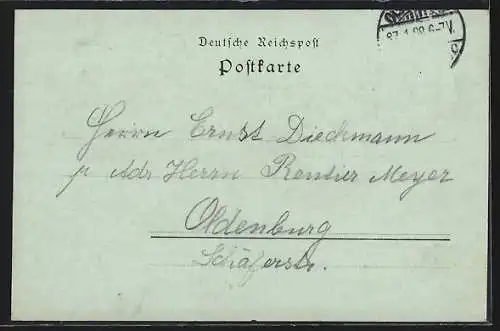 Deutsche Reichspost
Postkarte
Herrn Ernst Dieckmann
p Adr Herrn Rentier Meyer
Oldenburg
Schäferstr.